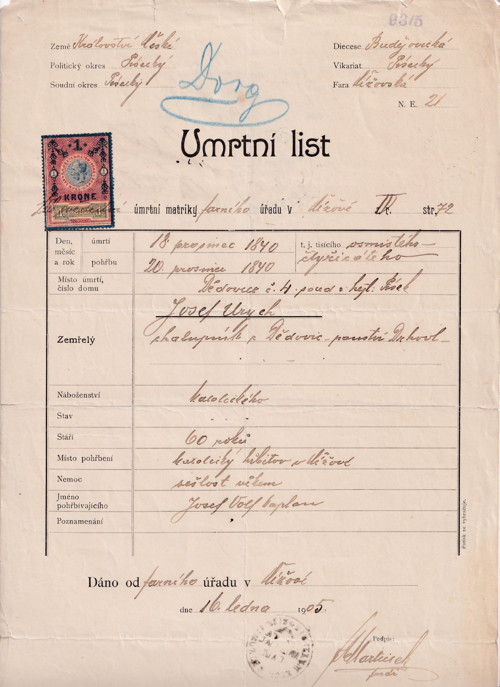 93/5
Země Království České
Diecese Budějovická
Politický okres Písecký
Vikariat Písecký
Soudní okres Písecký
Fara Křížovská
N. E. 21
Dvog
Úmrtní list
1
KRONE
úmrtní matriky farního úřadu v IV. str. 72
Den, měsíc a rok úmrtí 18 prosince 1840 t. j. tisícího osmistého
pohřbu 20. prosince 1840 čtyřicátého
Místo úmrtí, číslo domu Dědovice č. 4. soud a hejt. Písek
Zemřelý Josef Urych
chalupník z Dědovic panství Drhovl
Náboženství katolického
Stav
Stáří 60 roků
Místo pohřbení katolický hřbitov v
Nemoc sešlost věkem
Jméno pohřbívajícího Josef Volf kaplan
Poznamenání
Dáno od farního úřadu v
dne 16. ledna 1905.
Podpis:
Potisk se vyhrazuje.